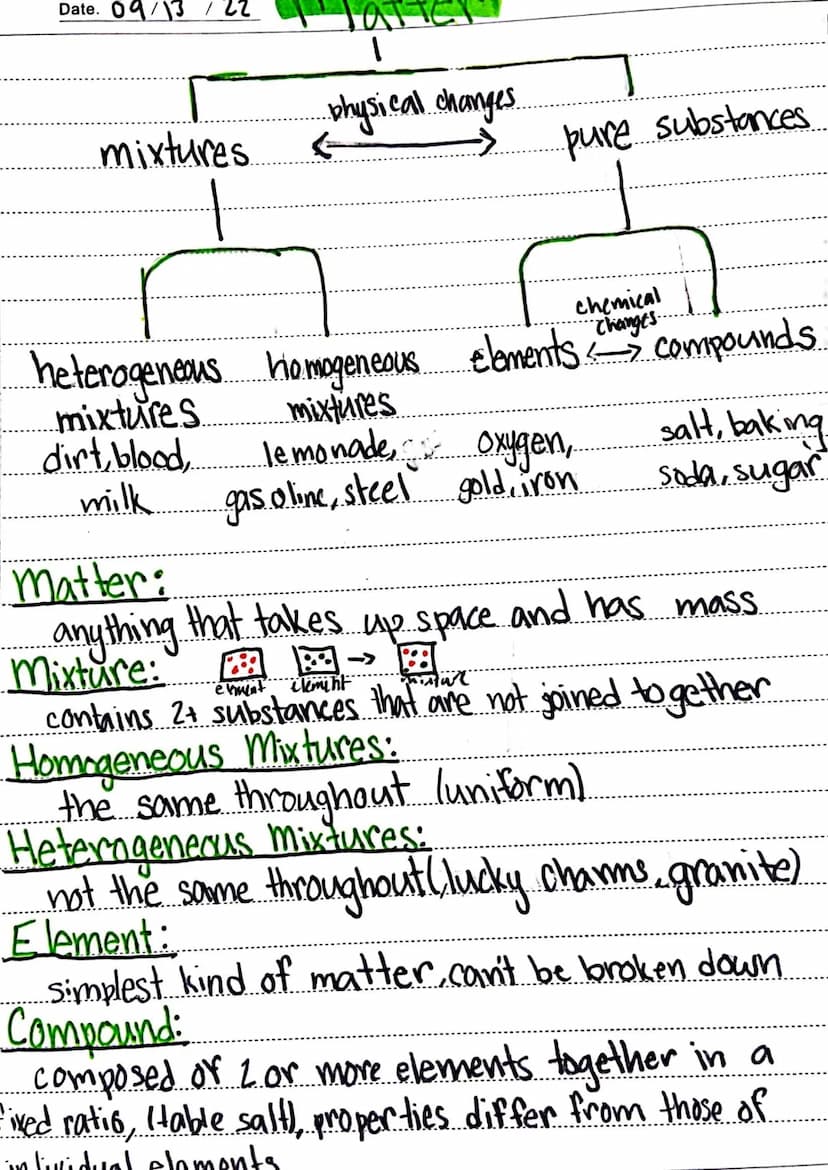 Date. 09/13/22
Matter
physical changes
mixtures pure substances
chemical
changes
heterogeneous homogeneous elements compounds
mixtures mixtures
dirt, blood, lemonade, oxygen, salt, baking
milk gasoline, steel gold, iron soda, sugar
Matter:
anything that takes up space and has mass
Mixture:
element element mixture
contains 2+ substances that are not joined together
Homogeneous Mixtures:
the same throughout (uniform)
Heterogeneous Mixtures:
not the same throughout (lucky charms, granite)
Element:
simplest kind of matter, can't be broken down
Compound:
composed of 2 or more elements together in a
fixed ratio, (table salt), properties differ from those of
individual elements